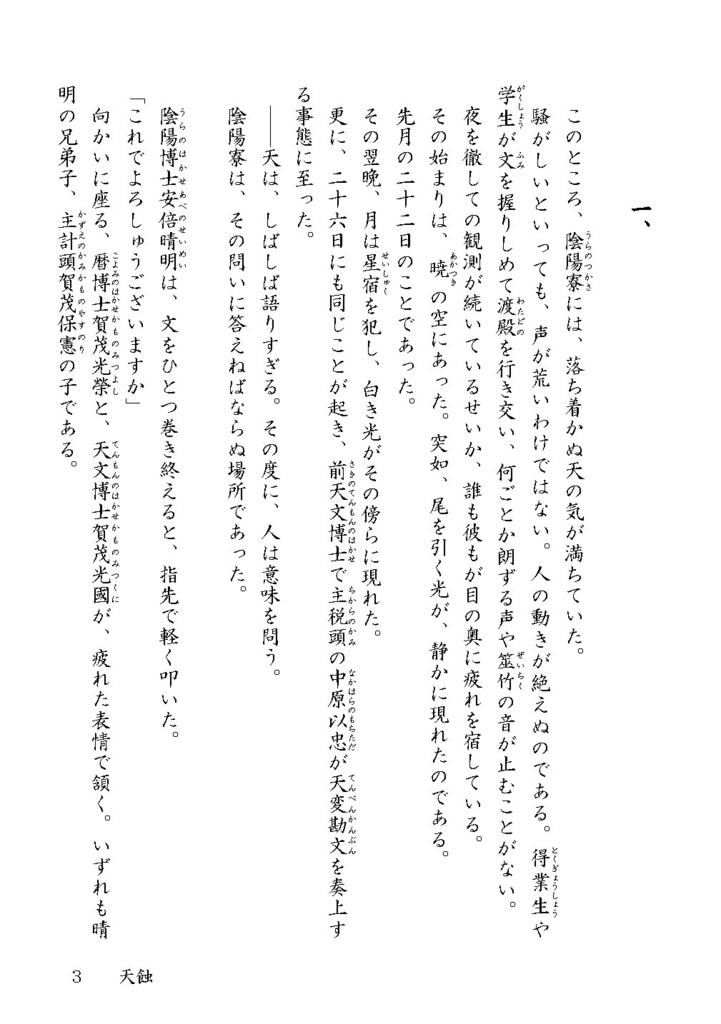 一、
このところ、陰陽寮には、落ち着かぬ天の気が満ちていた。
騒がしいといっても、声が荒いわけではない。人の動きが絶えぬのである。得業生や
学生が文を握りしめて渡殿を行き交い、何ごとか朗ずる声や筮竹の音が止むことがない。
夜を徹しての観測が続いているせいか、誰も彼もが目の奥に疲れを宿している。
その始まりは、暁の空にあった。突如、尾を引く光が、静かに現れたのである。
先月の二十二日のことであった。
その翌晩、月は星宿を犯し、白き光がその傍らに現れた。
更に、二十六日にも同じことが起き、前天文博士で主税頭の中原以忠が天変勘文を奏上す
る事態に至った。
――天は、しばしば語りすぎる。その度に、人は意味を問う。
陰陽寮は、その問いに答えねばならぬ場所であった。
陰陽博士安倍晴明は、文をひとつ巻き終えると、指先で軽く叩いた。
「これでよろしゅうございますか」
向かいに座る、暦博士賀茂光榮と、天文博士賀茂光國が、疲れた表情で頷く。いずれも晴
明の兄弟子、主計頭賀茂保憲の子である。
3 天蝕